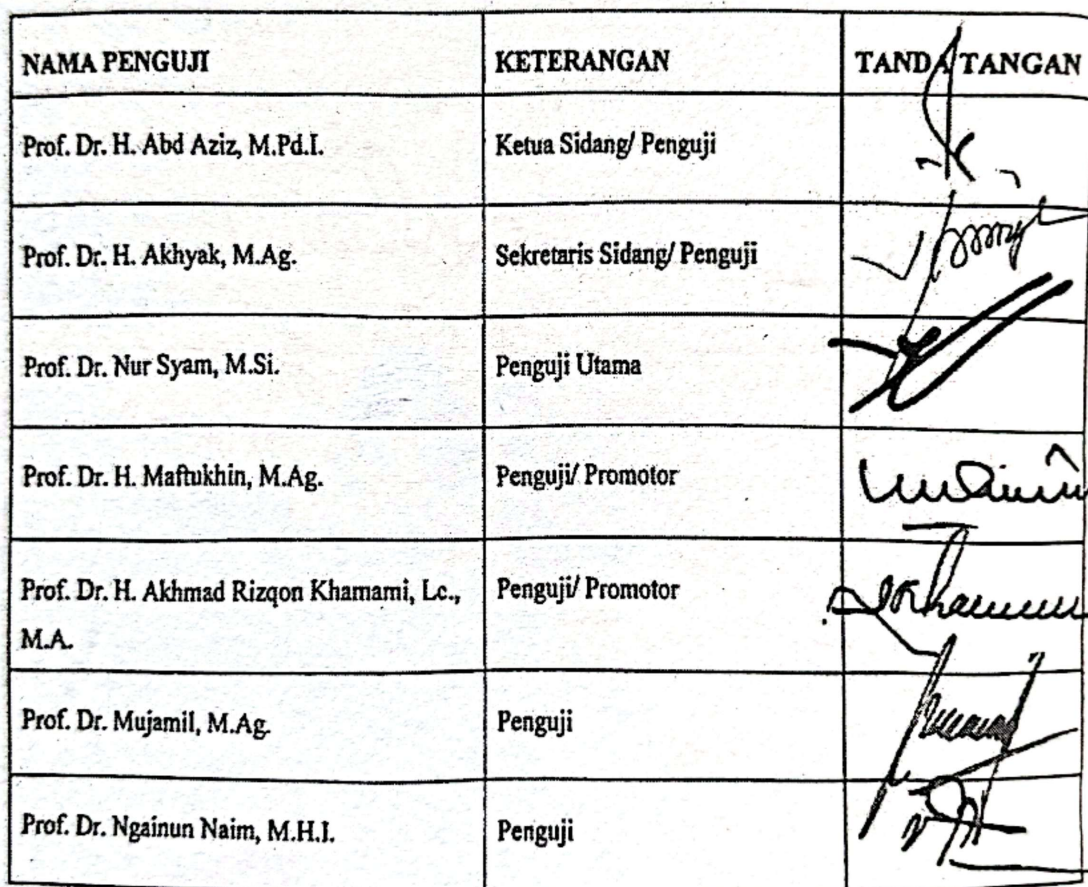 NAMA PENGUJI KETERANGAN TANDA TANGAN
Prof. Dr. H. Abd Aziz, M.Pd.I. Ketua Sidang/ Penguji
Prof. Dr. H. Akhyak, M.Ag. Sekretaris Sidang/ Penguji
Prof. Dr. Nur Syam, M.Si. Penguji Utama
Prof. Dr. H. Maftukhin, M.Ag. Penguji/ Promotor
Prof. Dr. H. Akhmad Rizqon Khamami, Lc., Penguji/ Promotor
M.A.
Prof. Dr. Mujamil, M.Ag. Penguji
Prof. Dr. Ngainun Naim, M.H.I. Penguji